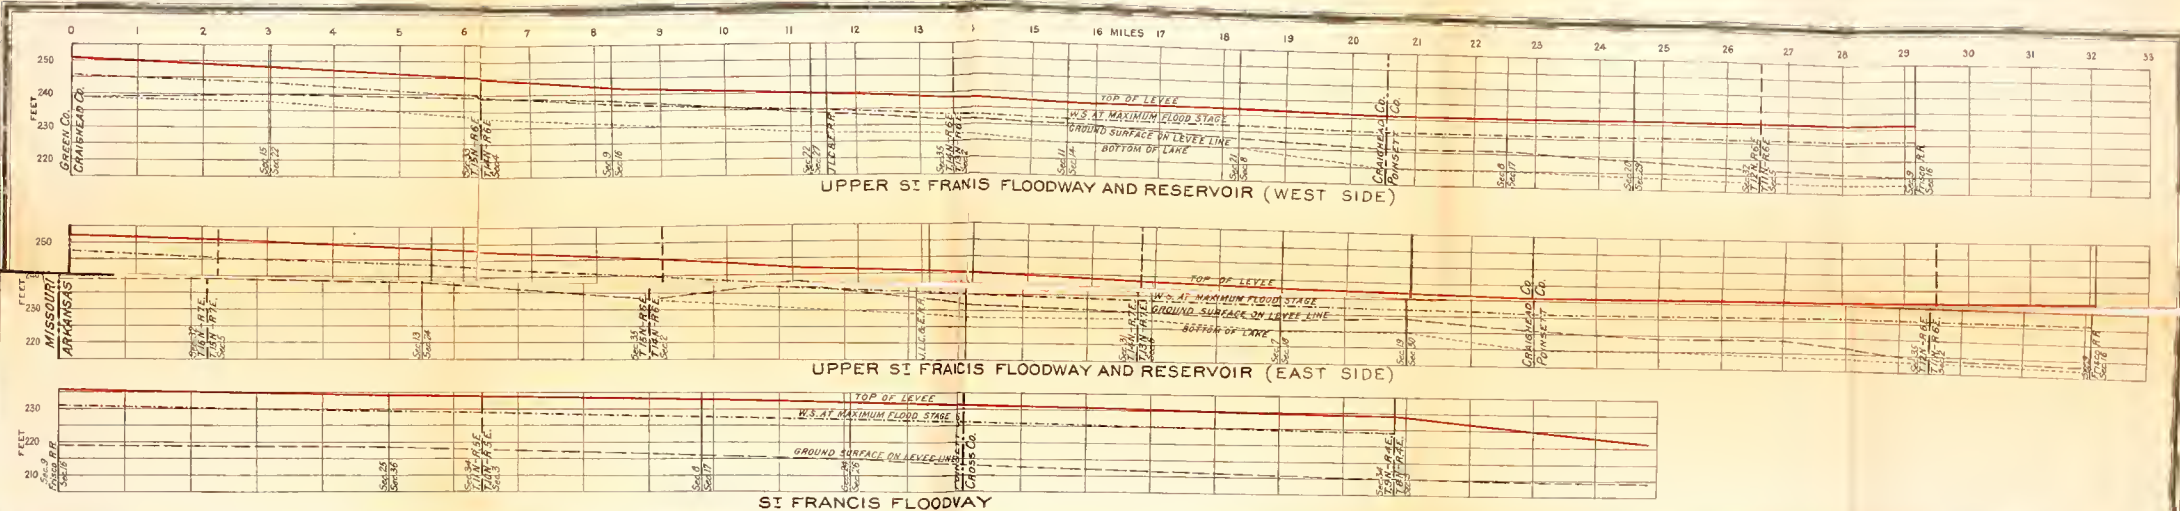 0 1 2 3 4 5 6 7 8 9 10 11 12 13 14 15 16 MILES 17 18 19 20 21 22 23 24 25 26 27 28 29 30 31 32 33
250
240
230
220
FEET
GREEN CO.
CRAIGHEAD CO.
Sec.15
Sec.22
Sec.33
T.15N-R.6E.
T.14N-R.6E.
Sec.4
Sec.9
Sec.16
Sec.22
Sec.27
J.L.C.&E.R.R.
Sec.35
T.14N-R.6E.
T.13N-R.6E.
Sec.2
Sec.11
Sec.14
TOP OF LEVEE
W.S. AT MAXIMUM FLOOD STAGE
GROUND SURFACE ON LEVEE LINE
BOTTOM OF LAKE
Sec.21
Sec.8
CRAIGHEAD CO.
POINSETT CO.
Sec.8
Sec.17
Sec.20
Sec.29
Sec.32
T.12N-R.6E.
T.11N-R.6E.
Sec.5
Sec.9
Frisco R.R.
Sec.16
UPPER ST FRANIS FLOODWAY AND RESERVOIR (WEST SIDE)
250
240
230
220
FEET
MISSOURI
ARKANSAS
T.16N-R.7E.
T.15N-R.7E.
Sec.5
Sec.13
Sec.24
Sec.35
T.15N-R.6E.
T.14N-R.6E.
Sec.2
J.L.C.&E.R.R.
Sec.31
T.14N-R.7E.
T.13N-R.7E.
Sec.6
TOP OF LEVEE
W.S. AT MAXIMUM FLOOD STAGE
GROUND SURFACE ON LEVEE LINE
BOTTOM OF LAKE
Sec.7
Sec.18
Sec.19
Sec.30
CRAIGHEAD CO.
POINSETT CO.
Sec.35
T.12N-R.6E.
T.11N-R.6E.
Sec.9
Frisco R.R.
Sec.16
UPPER ST FRAICIS FLOODWAY AND RESERVOIR (EAST SIDE)
230
220
210
FEET
Sec.9
Frisco R.R.
Sec.16
Sec.25
Sec.36
Sec.34
T.11N-R.5E.
T.10N-R.5E.
Sec.3
Sec.8
Sec.17
TOP OF LEVEE
W.S. AT MAXIMUM FLOOD STAGE
GROUND SURFACE ON LEVEE LINE
POINSETT CO.
CROSS CO.
Sec.34
T.9N-R.4E.
T.8N-R.4E.
Sec.3
ST FRANCIS FLOODVAY